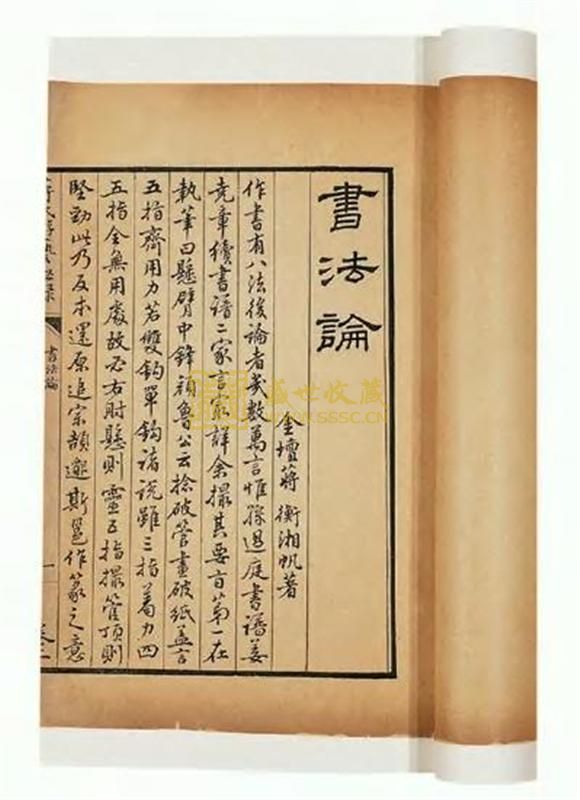 書法論
金壇蔣衡湘帆著
作書有八法後論者幾數萬言惟孫過庭書譜姜
堯章續書譜二家言最詳余撮其要言第一在
執筆曰懸臂中鋒顏魯公云捻破管畫破紙蓋言
五指齊用力若雙鈎單鈎諸說雖三指着力四
五指全無用處故必右肘懸則靈五指撮管頂則
堅勁此乃反本還原追宗頡邈斯邕作篆之意
書法論
一
盛世收藏
WWW.SSSC.CN